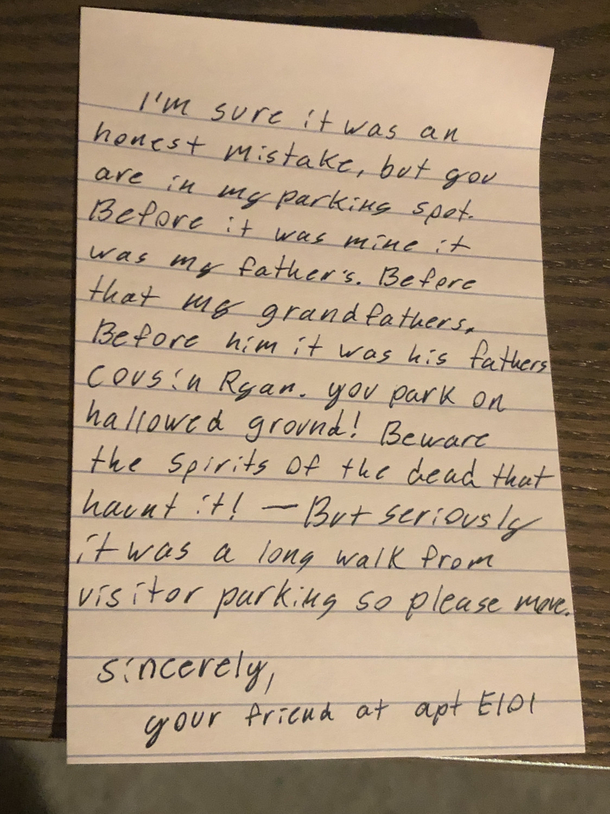 I'm sure it was an
honest mistake, but you
are in my parking spot.
Before it was mine it
was my father's. Before
that my grandfathers.
Before him it was his fathers
cousin Ryan. you park on
hallowed ground! Beware
the spirits of the dead that
haunt it! — But seriously
it was a long walk from
visitor parking so please move.
sincerely,
your friend at apt E101